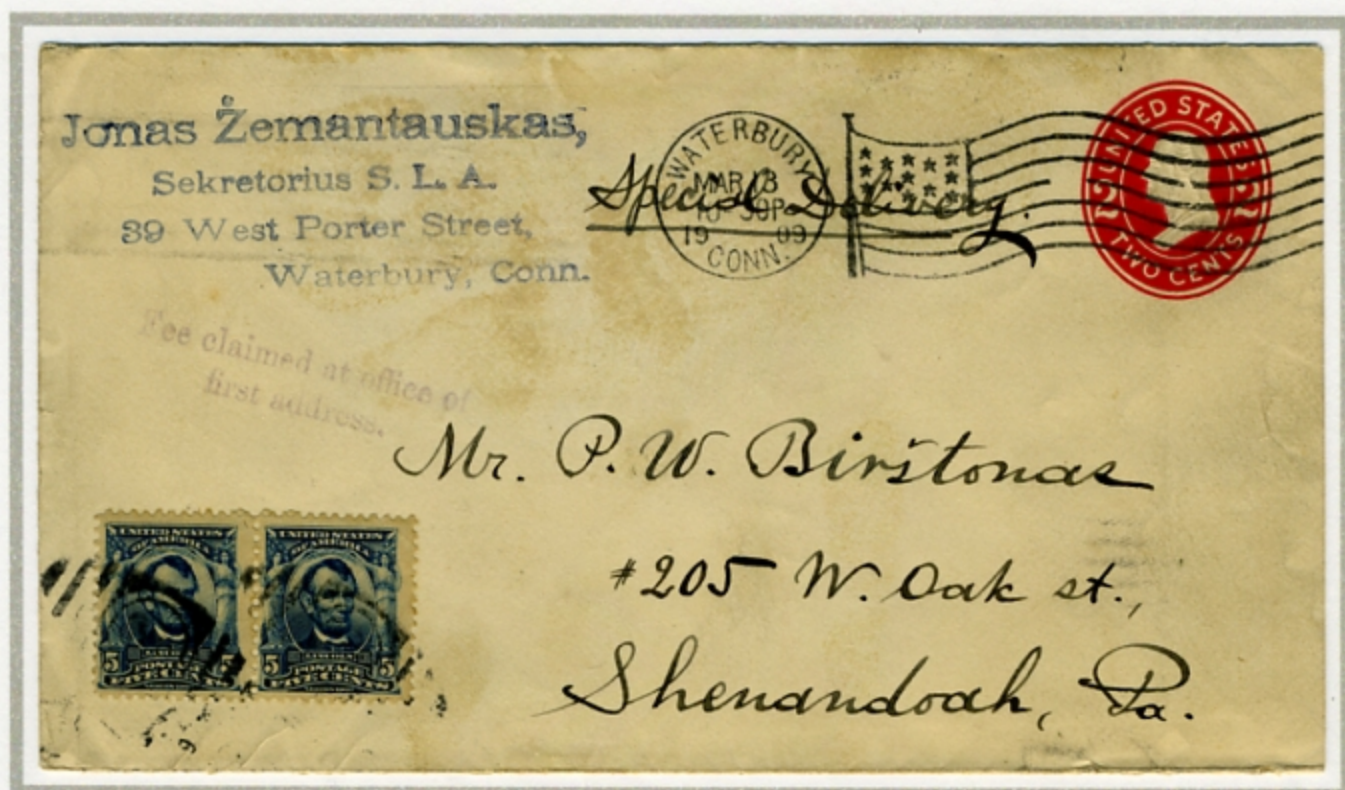 Jonas Żemantauskas,
Sekretorius S. L. A.
39 West Porter Street,
Waterbury, Conn.
WATERBURY
MAR 13
10-30P
1909
CONN.
Special Delivery.
UNITED STATES
2 2
TWO CENTS
Fee claimed at office of
first address.
Mr. P. W. Birštonas
#205 W. Oak st.,
Shenandoah, Pa.
UNITED STATES
OF AMERICA
5 5
POSTAGE
FIVE CENTS
UNITED STATES
OF AMERICA
5 5
POSTAGE
FIVE CENTS